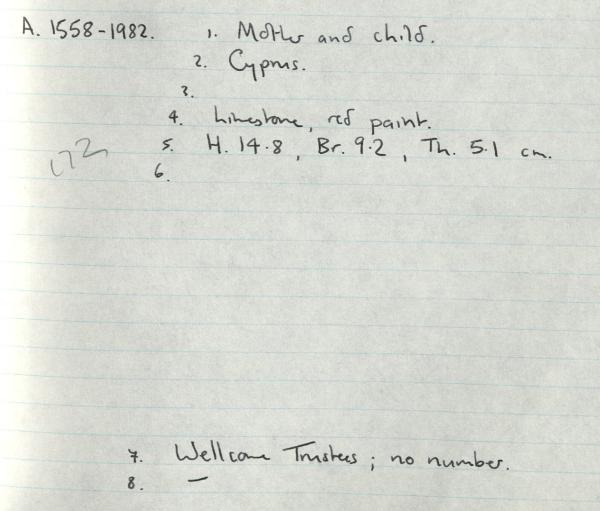 A. 1558-1982. 1. Mother and child.
2. Cyprus.
3.
4. Limestone, red paint.
5. H. 14.8, Br. 9.2, Th. 5.1 cm.
172
6.
7. Wellcome Trustees; no number.
8. —